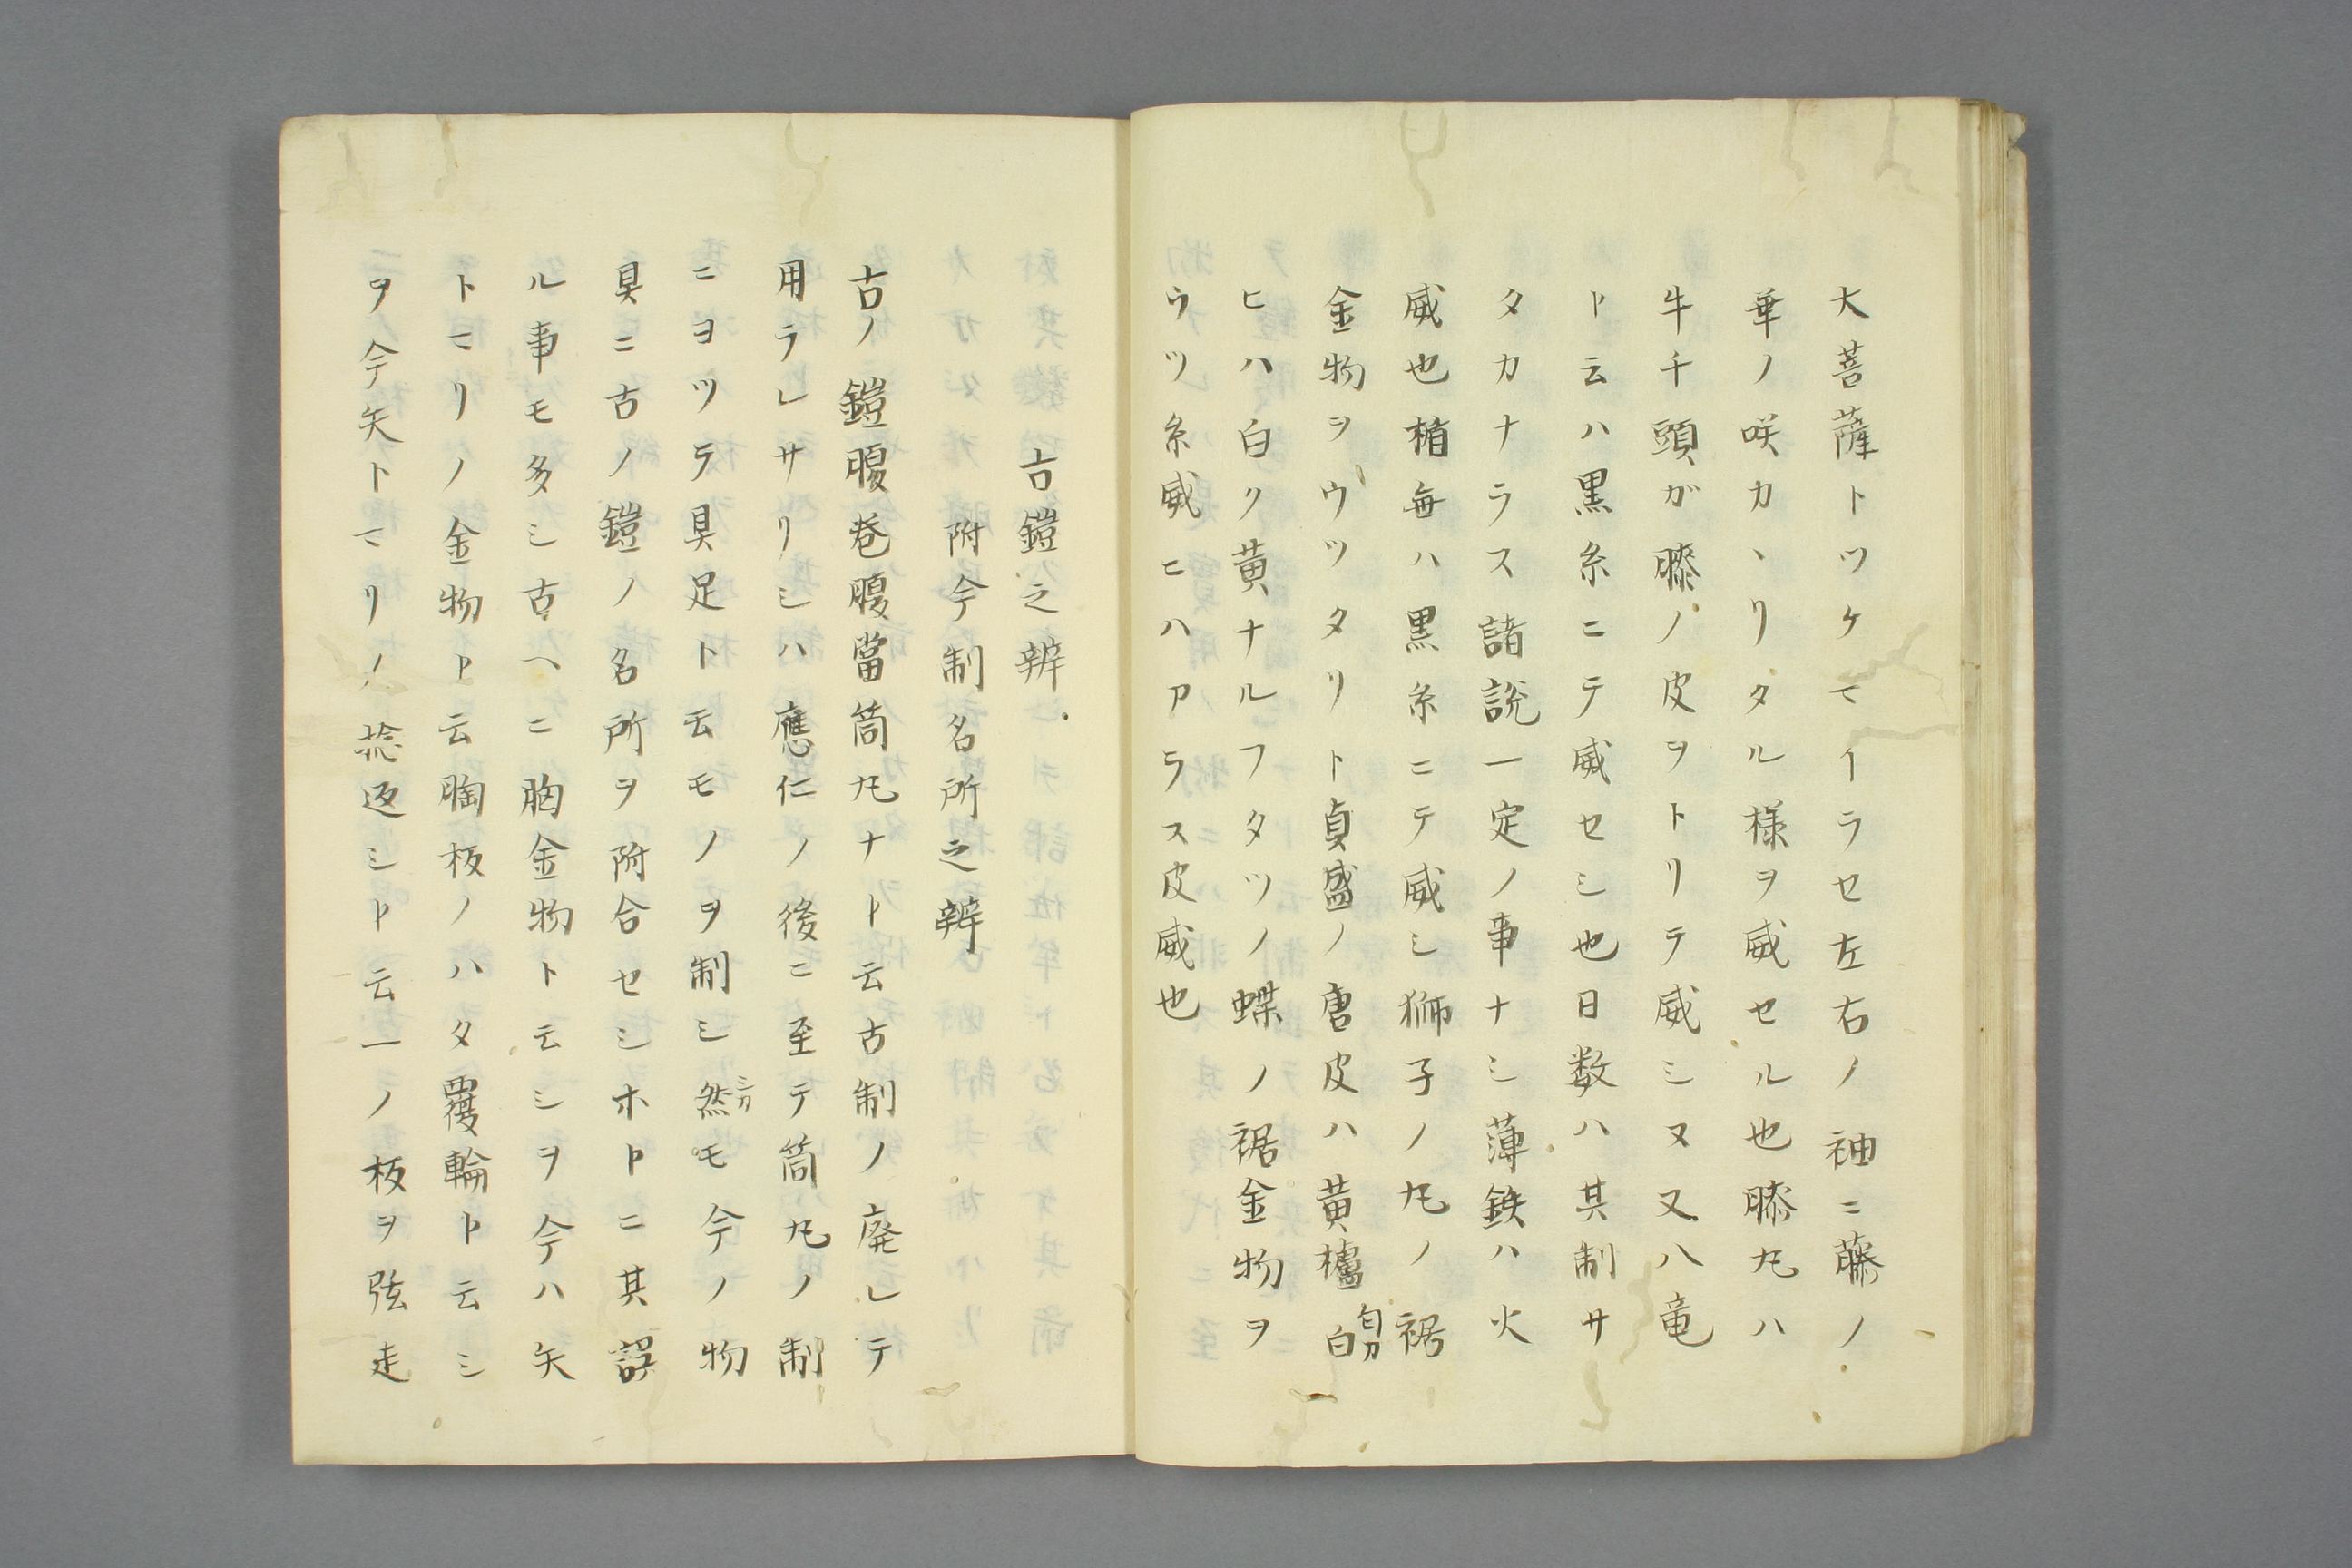 大菩薩トツケマイラセ左右ノ袖ニ藤ノ
華ノ咲カヽリタル様ヲ威セル也膝丸ハ
牛千頭ガ膝ノ皮ヲトリテ威シヌ又八竜
ト云ハ黒糸ニテ威セシ也日数ハ其制サ
タカナラス諸説一定ノ事ナシ薄鉄ハ火
威也楯無ハ黒糸ニテ威シ獅子ノ丸ノ裾
金物ヲウツタリト貞盛ノ唐皮ハ黄櫨白
匂カ
ヒハ白ク黄ナルフタツノ蝶ノ裾金物ヲ
ウツ糸威ニハアラス皮威也
古鎧之辨
附今制名所之辨
古ノ鎧腹巻腹當筒丸ナト云古制ノ廃レテ
用ラレサリシハ應仁ノ後ニ至テ筒丸ノ制
ニヨツテ具足ト云モノヲ制シ然モ今ノ物
シカ
具ニ古ノ鎧ノ名所ヲ附合セシホトニ其誤
ル事モ多シ古ヘニ胸金物ト云シヲ今ハ矢
トマリノ金物ト云胸板ノハタ覆輪ト云シ
ヲ今矢トマリノ捻返シト云一ノ板ヲ弦走